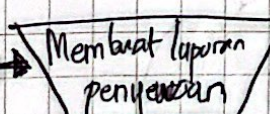 Membuat laporan
penyewaan